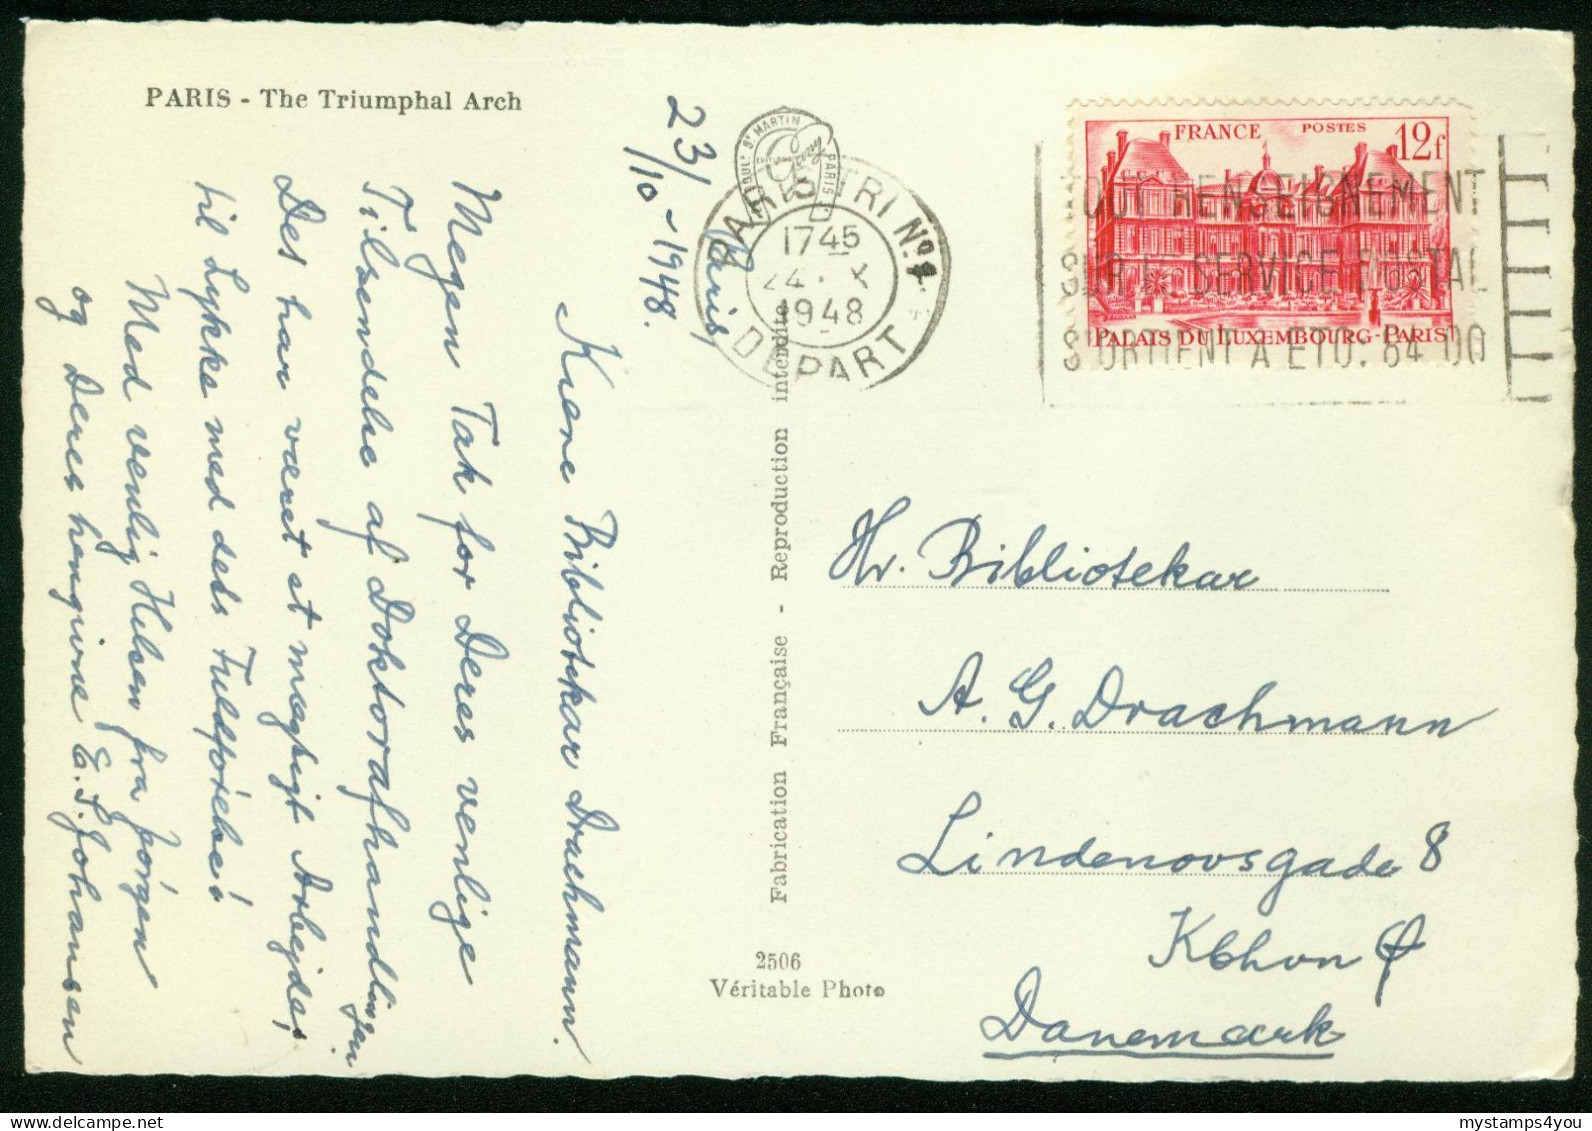 PARIS - The Triumphal Arch
Paris, 23/10-1948.
Kære Bibliotekar Drachmann.
Megen Tak for Deres venlige
Tilsendelse af Doktorafhandlingen.
Det har været et mægtigt Arbejde,
til Lykke med dets Fuldførelse!
Med venlig Hilsen fra Jørgen
og Deres hengivne E. P. Johansen
BOUL. ST MARTIN
PARIS
PARIS TRI Nº
1745
24 · X
1948
DEPART
FRANCE POSTES 12f
PALAIS DU LUXEMBOURG-PARIS
TOUT RENSEIGNEMENT
SUR LE SERVICE POSTAL
S'OBTIENT A ETO. 84 00
Fabrication Française - Reproduction interdite
2506
Véritable Photo
Hr. Bibliotekar
A. G. Drachmann
Lindenovsgade 8
Kbhvn Ø
Danemark
mystamps4you